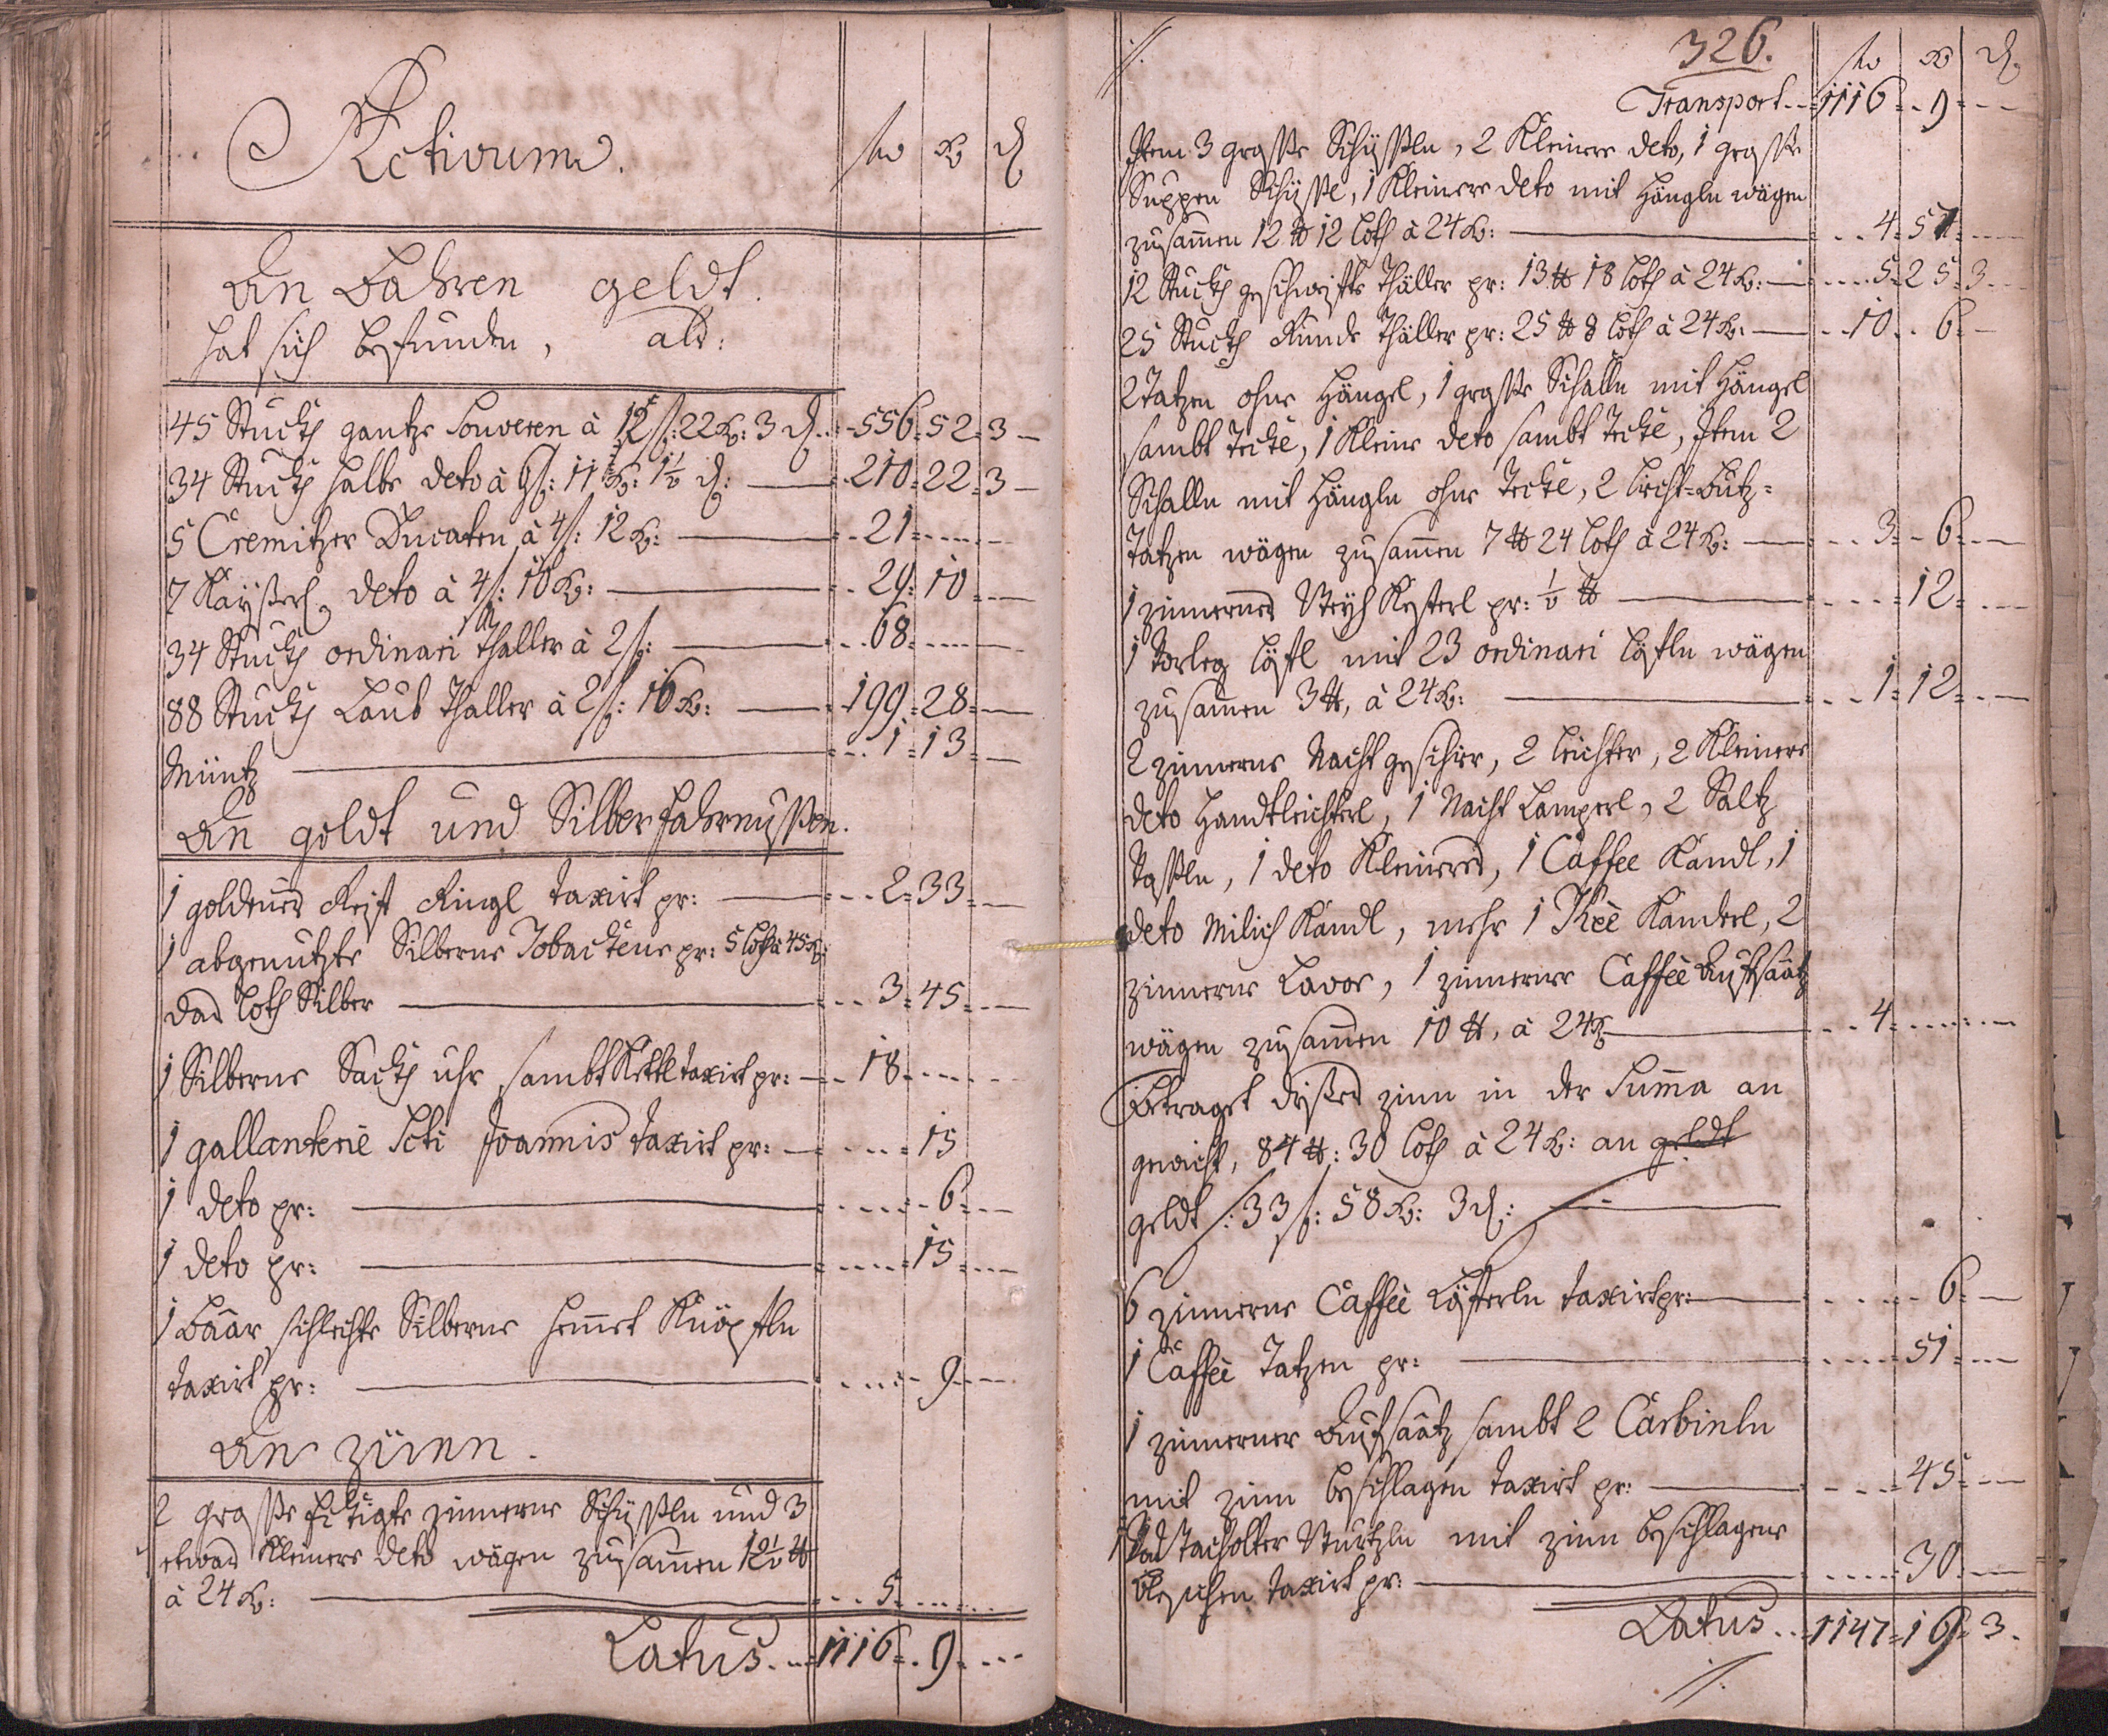 Activum. fl xr d
An Bahren geldt.
hat sich befunden, als:
45 Stuckh gantze Souveren à 12 fl: 22 xr: 3 d. 556 52 3
34 Stuckh halbe deto à 6 fl: 11 xr: 1½ d: 210 22 3
5 Cremitzer Ducaten à 4 fl: 12 xr: 21
7 Kayßerl. deto à 4 fl: 10 xr: 29 10
34 Stuckh ordinari Thaller à 2 fl: 68
88 Stuckh Laub Thaller à 2 fl: 16 xr: 199 28
Müntz 1 13
An goldt und Silber fahrnußen.
1 goldener Reif Ringl taxirt pr: 2 33
1 abgenutzte Silberne Tobackene pr: 5 loth à 45 xr:
das loth Silber 3 45
1 Silberne Sackh uhr sambt Kettl taxirt pr: 18
1 gallanterie Scti Joannis taxirt pr: 15
1 deto pr: 6
1 deto pr: 15
1 Baar schlechte Silberne hemmet Knöpfln
taxirt pr: 9
An zinn.
2 große zinnerne Schyßln und 3
etwas kleinere deto wägen zusammen 12½ ℔
à 24 xr: 5
Latus 1116 9
326. fl xr d.
Transport 1116 9
Item 3 große Schyßln, 2 kleinere deto, 1 große
Suppen Schyßl, 1 kleinere deto mit Hängln wägen
zusammen 12 ℔ 12 loth à 24 xr: 4 57
12 Stuckh geschweifte Thäller pr: 13 ℔ 18 loth à 24 xr: 5 25 3
25 Stuckh Runde Thäller pr: 25 ℔ 8 loth à 24 xr: 10 6
2 Tatzen ohne Hängl, 1 große Schalln mit Hängel
sambt Teckè, 1 kleine deto sambt Teckè, Item 2
Schalln mit Hängln ohne Teckè, 2 Licht-Butz=
Tatzen wägen zusammen 7 ℔ 24 loth à 24 xr: 3 6
1 zinnernes pr: ½ ℔ 12
1 Vorleg löfl mit 23 ordinari löfln wägen
zusammen 3 ℔, à 24 xr: 1 12
2 zinnerne Nacht geschirr, 2 leichter, 2 kleinere
deto Handtleichterl, 1 Nacht Lamperl, 2 Saltz
Vaßln, 1 deto kleineres, 1 Caffee Kandl, 1
deto Milich Kandl, mehr 1 Theè Kanderl, 2
zinnerne Lavor, 1 zinnerner Caffeè Aufsaatz
wägen zusammen 10 ℔, à 24 xr 4
Betraget dißes zinn in der Summa an
gewicht, 84 ℔: 30 loth à 24 xr: an geldt
geldt /: 33 fl: 58 xr: 3 d:
6 zinnerne Caffeè Löfferln taxirt pr: 6
1 Caffeè Tatzen pr: 51
1 zinnerner Aufsaatz sambt 2 Carbinln
mit zinn beschlagen taxirt pr: 45
mit zinn beschlagene
taxirt pr: 30
Latus 1147 19 3.